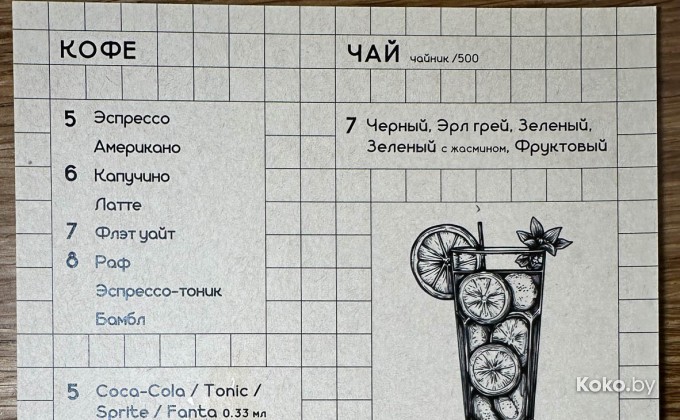 КОФЕ
5 Эспрессо
Американо
6 Капучино
Латте
7 Флэт уайт
8 Раф
Эспрессо-тоник
Бамбл
5 Coca-Cola / Tonic /
Sprite / Fanta 0.33 мл
ЧАЙ чайник /500
7 Черный, Эрл грей, Зеленый,
Зеленый с жасмином, Фруктовый
Koko.by